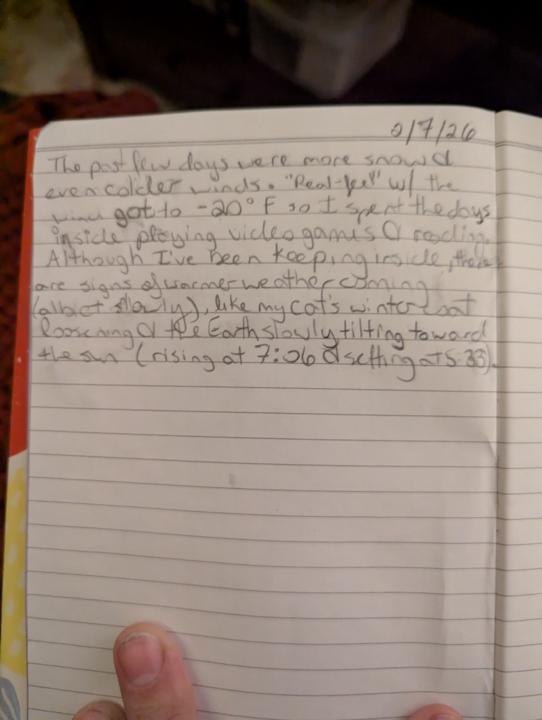 2/7/26
The past few days were more snow &
even colder winds. "Real-feel" w/ the
wind got to -20°F so I spent the days
inside playing video games & reading.
Although I've been keeping inside, there
are signs of warmer weather coming
(albiet slowly), like my cat's winter coat
loosening & the Earth slowly tilting toward
the sun (rising at 7:06 & setting at 5:33).